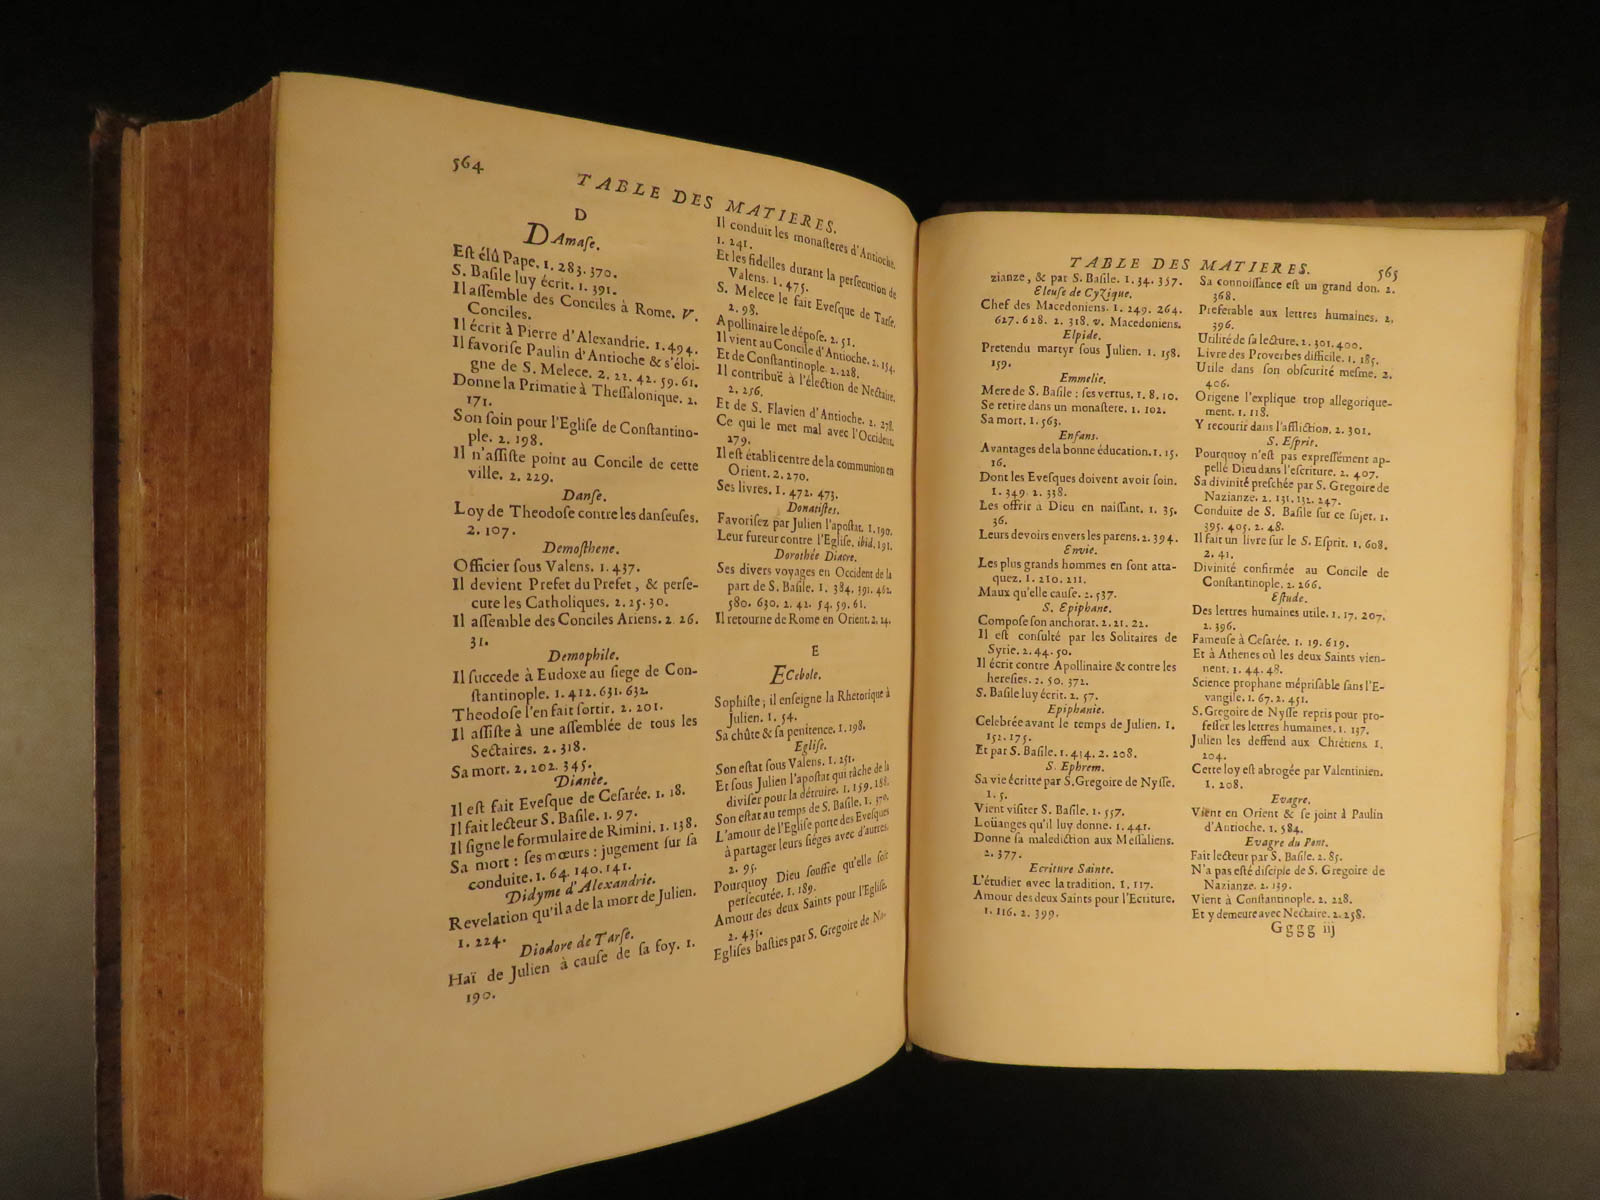 564
TABLE DES MATIERES.
D
DAmase.
Est élû Pape. 1. 283. 370.
S. Basile luy écrit. 1. 391.
Il assemble des Conciles à Rome. V.
Conciles.
Il écrit à Pierre d'Alexandrie. 1. 494.
Il favorise Paulin d'Antioche & s'éloi-
gne de S. Melece. 2. 22. 42. 59. 61.
Donne la Primatie à Thessalonique. 2.
171.
Son soin pour l'Eglise de Constantino-
ple. 2. 198.
Il n'assiste point au Concile de cette
ville. 2. 229.
Danse.
Loy de Theodose contre les danseuses.
2. 107.
Demosthene.
Officier sous Valens. 1. 437.
Il devient Prefet du Prefet, & perse-
cute les Catholiques. 2. 25. 30.
Il assemble des Conciles Ariens. 2 26.
31.
Demophile.
Il succede à Eudoxe au siege de Con-
stantinople. 1. 412. 631. 632.
Theodose l'en fait sortir. 2. 201.
Il assiste à une assemblée de tous les
Sectaires. 2. 318.
Sa mort. 2. 202. 345.
Dianée.
Il est fait Evesque de Cesarée. 1. 18.
Il fait lecteur S. Basile. 1. 97.
Il signe le formulaire de Rimini. 1. 138.
Sa mort : ses mœurs : jugement sur sa
conduite. 1. 64. 140. 141.
Didyme d'Alexandrie.
Revelation qu'il a de la mort de Julien.
1. 224.
Diodore de Tarse.
Haï de Julien à cause de sa foy. 1.
190.
Il conduit les monasteres d'Antioche.
1. 241.
Et les fidelles durant la persecution de
Valens. 1. 475.
S. Melece le fait Evesque de Tarse.
2. 98.
Apollinaire le dépose. 2. 51.
Il vient au Concile d'Antioche. 2. 154.
Et de Constantinople. 2. 228.
Il contribuë à l'élection de Nectaire.
2. 256.
Et de S. Flavien d'Antioche. 2. 278.
Ce qui le met mal avec l'Occident.
279.
Il est établi centre de la communion en
Orient. 2. 270.
Ses livres. 1. 472. 473.
Donatistes.
Favorisez par Julien l'apostat. 1. 190.
Leur fureur contre l'Eglise. ibid. 191.
Dorothée Diacre.
Ses divers voyages en Occident de la
part de S. Basile. 1. 384. 391. 462.
580. 630. 2. 42. 54. 59. 61.
Il retourne de Rome en Orient. 2. 24.
E
ECebole.
Sophiste ; il enseigne la Rhetorique à
Julien. 1. 54.
Sa chûte & sa penitence. 1. 198.
Eglise.
Son estat sous Valens. 1. 251.
Et sous Julien l'apostat qui tâche de la
diviser pour la détruire. 1. 159. 188.
Son estat au temps de S. Basile. 1. 370.
L'amour de l'Eglise porte des Evesques
à partager leurs siéges avec d'autres.
2. 95.
Pourquoy Dieu souffre qu'elle soit
persecutée. 1. 189.
Amour des deux Saints pour l'Eglise.
2. 435.
Eglises basties par S. Gregoire de Na-
TABLE DES MATIERES.
565
zianze, & par S. Basile. 1. 34. 357.
Eleuse de Cyzique.
Chef des Macedoniens. 1. 249. 264.
627. 628. 2. 318. v. Macedoniens.
Elpide.
Pretendu martyr sous Julien. 1. 158.
159.
Emmelie.
Mere de S. Basile : ses vertus. 1. 8. 10.
Se retire dans un monastere. 1. 102.
Sa mort. 1. 563.
Enfans.
Avantages de la bonne éducation. 1. 15.
16.
Dont les Evesques doivent avoir soin.
1. 349. 2. 338.
Les offrir à Dieu en naissant. 1. 35.
36.
Leurs devoirs envers les parens. 2. 394.
Envie.
Les plus grands hommes en sont atta-
quez. 1. 210. 211.
Maux qu'elle cause. 2. 537.
S. Epiphane.
Compose son anchorat. 2. 21. 22.
Il est consulté par les Solitaires de
Syrie. 2. 44. 50.
Il écrit contre Apollinaire & contre les
heresies. 2. 50. 372.
S. Basile luy écrit. 2. 57.
Epiphanie.
Celebrée avant le temps de Julien. 1.
152. 175.
Et par S. Basile. 1. 434. 2. 208.
S. Ephrem.
Sa vie écritte par S. Gregoire de Nysse.
1. 5.
Vient visiter S. Basile. 1. 557.
Loüanges qu'il luy donne. 1. 441.
Donne sa malediction aux Messaliens.
2. 377.
Ecriture Sainte.
L'étudier avec la tradition. 1. 117.
Amour des deux Saints pour l'Ecriture.
1. 116. 2. 399.
Sa connoissance est un grand don. 2.
368.
Preferable aux lettres humaines. 2.
396.
Utilité de sa lecture. 2. 301. 400.
Livre des Proverbes difficile. 1. 185.
Utile dans son obscurité mesme. 2.
406.
Origene l'explique trop allegorique-
ment. 1. 118.
Y recourir dans l'affliction. 2. 301.
S. Esprit.
Pourquoy n'est pas expressément ap-
pellé Dieu dans l'escriture. 2. 407.
Sa divinité preschée par S. Gregoire de
Nazianze. 2. 131. 132. 247.
Conduite de S. Basile sur ce sujet. 1.
395. 405. 2. 48.
Il fait un livre sur le S. Esprit. 1. 608.
2. 41.
Divinité confirmée au Concile de
Constantinople. 2. 266.
Estude.
Des lettres humaines utile. 1. 17. 207.
2. 396.
Fameuse à Cesarée. 1. 19. 619.
Et à Athenes où les deux Saints vien-
nent. 1. 44. 48.
Science prophane méprisable sans l'E-
vangile. 1. 67. 2. 451.
S. Gregoire de Nysse repris pour pro-
fesser les lettres humaines. 1. 137.
Julien les deffend aux Chrétiens. 1.
204.
Cette loy est abrogée par Valentinien.
1. 208.
Evagre.
Vient en Orient & se joint à Paulin
d'Antioche. 1. 584.
Evagre du Pont.
Fait lecteur par S. Basile. 2. 85.
N'a pas esté disciple de S. Gregoire de
Nazianze. 2. 139.
Vient à Constantinople. 2. 228.
Et y demeure avec Nectaire. 2. 258.
Gggg iij